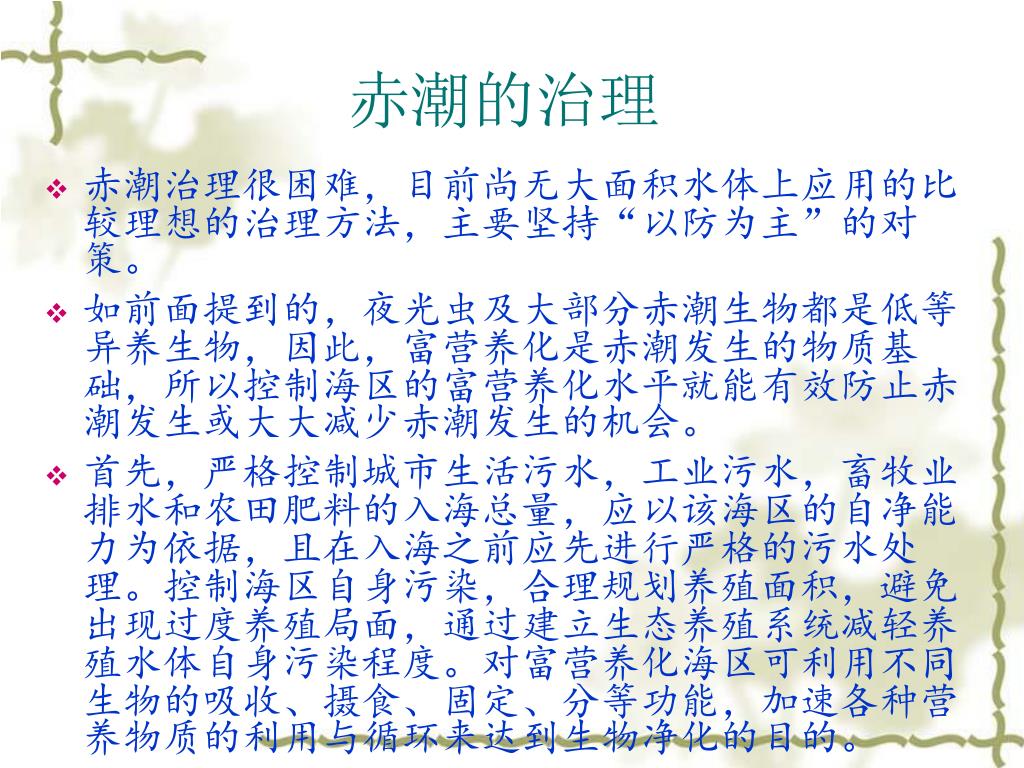 赤潮的治理
赤潮治理很困难，目前尚无大面积水体上应用的比
较理想的治理方法，主要坚持“以防为主”的对
策。
如前面提到的，夜光虫及大部分赤潮生物都是低等
异养生物，因此，富营养化是赤潮发生的物质基
础，所以控制海区的富营养化水平就能有效防止赤
潮发生或大大减少赤潮发生的机会。
首先，严格控制城市生活污水，工业污水，畜牧业
排水和农田肥料的入海总量，应以该海区的自净能
力为依据，且在入海之前应先进行严格的污水处
理。控制海区自身污染，合理规划养殖面积，避免
出现过度养殖局面，通过建立生态养殖系统减轻养
殖水体自身污染程度。对富营养化海区可利用不同
生物的吸收、摄食、固定、分等功能，加速各种营
养物质的利用与循环来达到生物净化的目的。